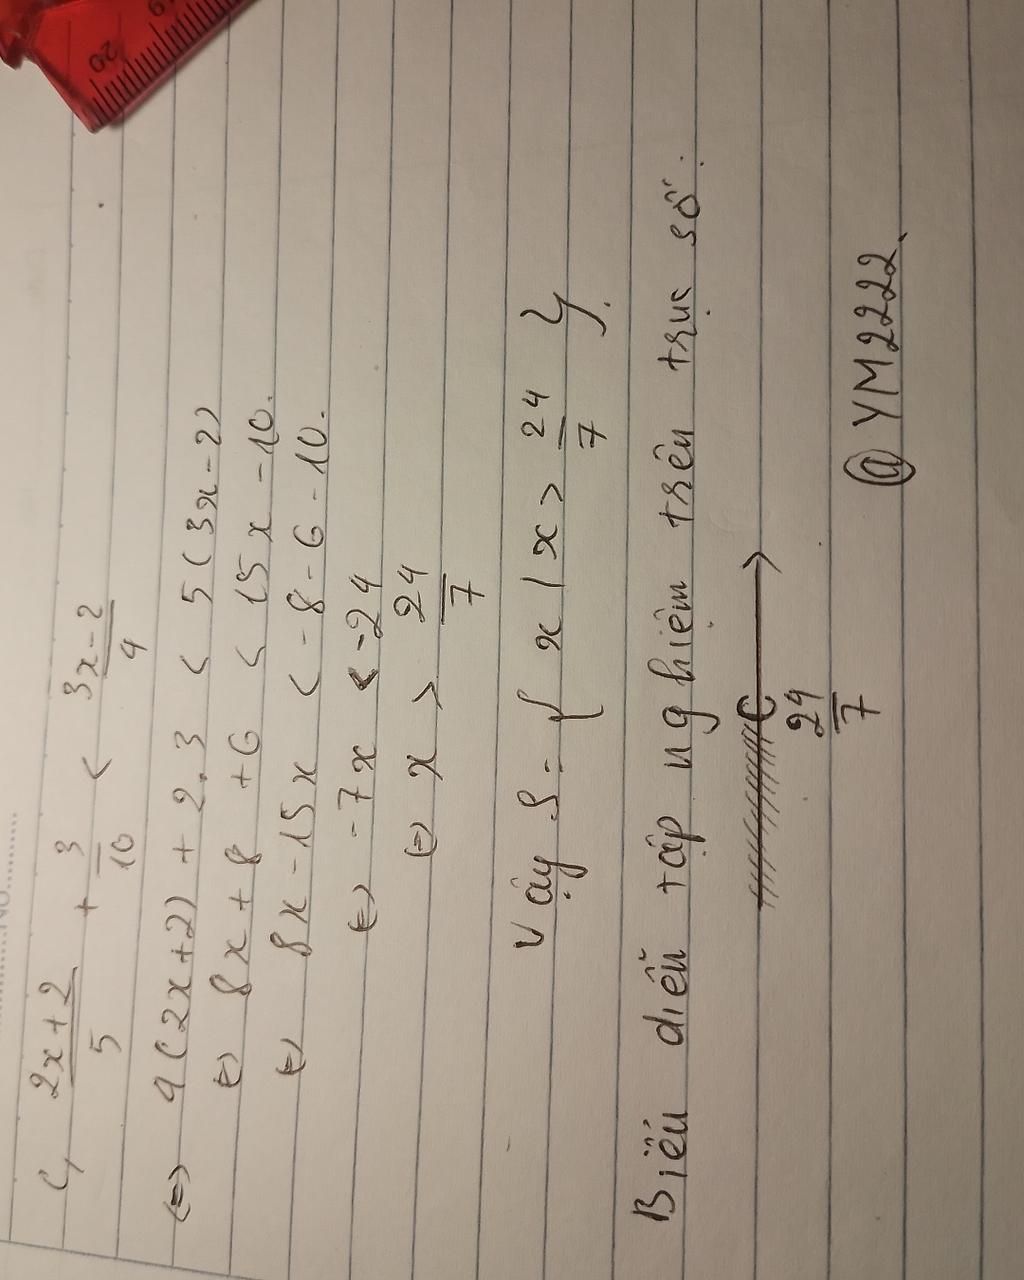 C, \frac{2x+2}{5} + \frac{3}{10} < \frac{3x-2}{4}
(=) 4(2x+2) + 2.3 < 5(3x-2)
(=) 8x + 8 + 6 < 15x - 10.
(=) 8x - 15x < -8 - 6 - 10.
(=) -7x < -24
(=) x > \frac{24}{7}
Vậy S = { x | x > \frac{24}{7} }.
Biểu diễn tập nghiệm trên trục số.
\frac{24}{7}
@YM2222
20
19